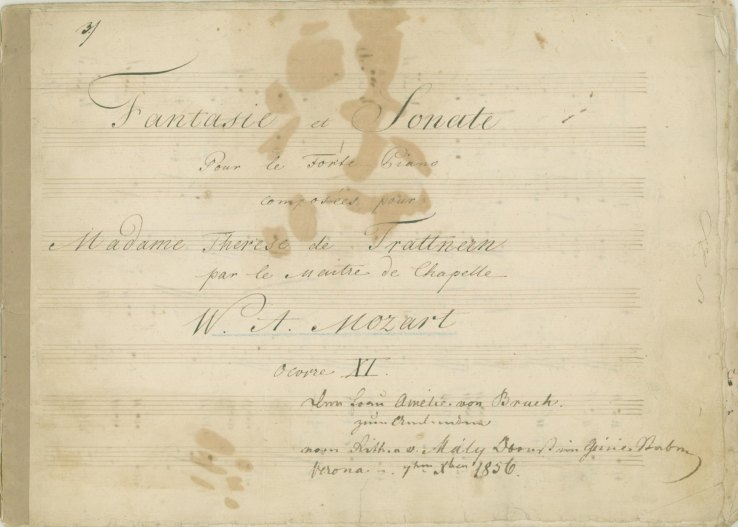 3/
Fantasie et Sonate
Pour le Forte Piano
composées pour
Madame Therese de Trattnern
par le Maitre de Chapelle
W. A. Mozart
Oevre XI.
Frau Amélie von Bruck.
zum
vom Ritt. v. Mály im Genie Stabe
Verona 7ten Xber 1856.